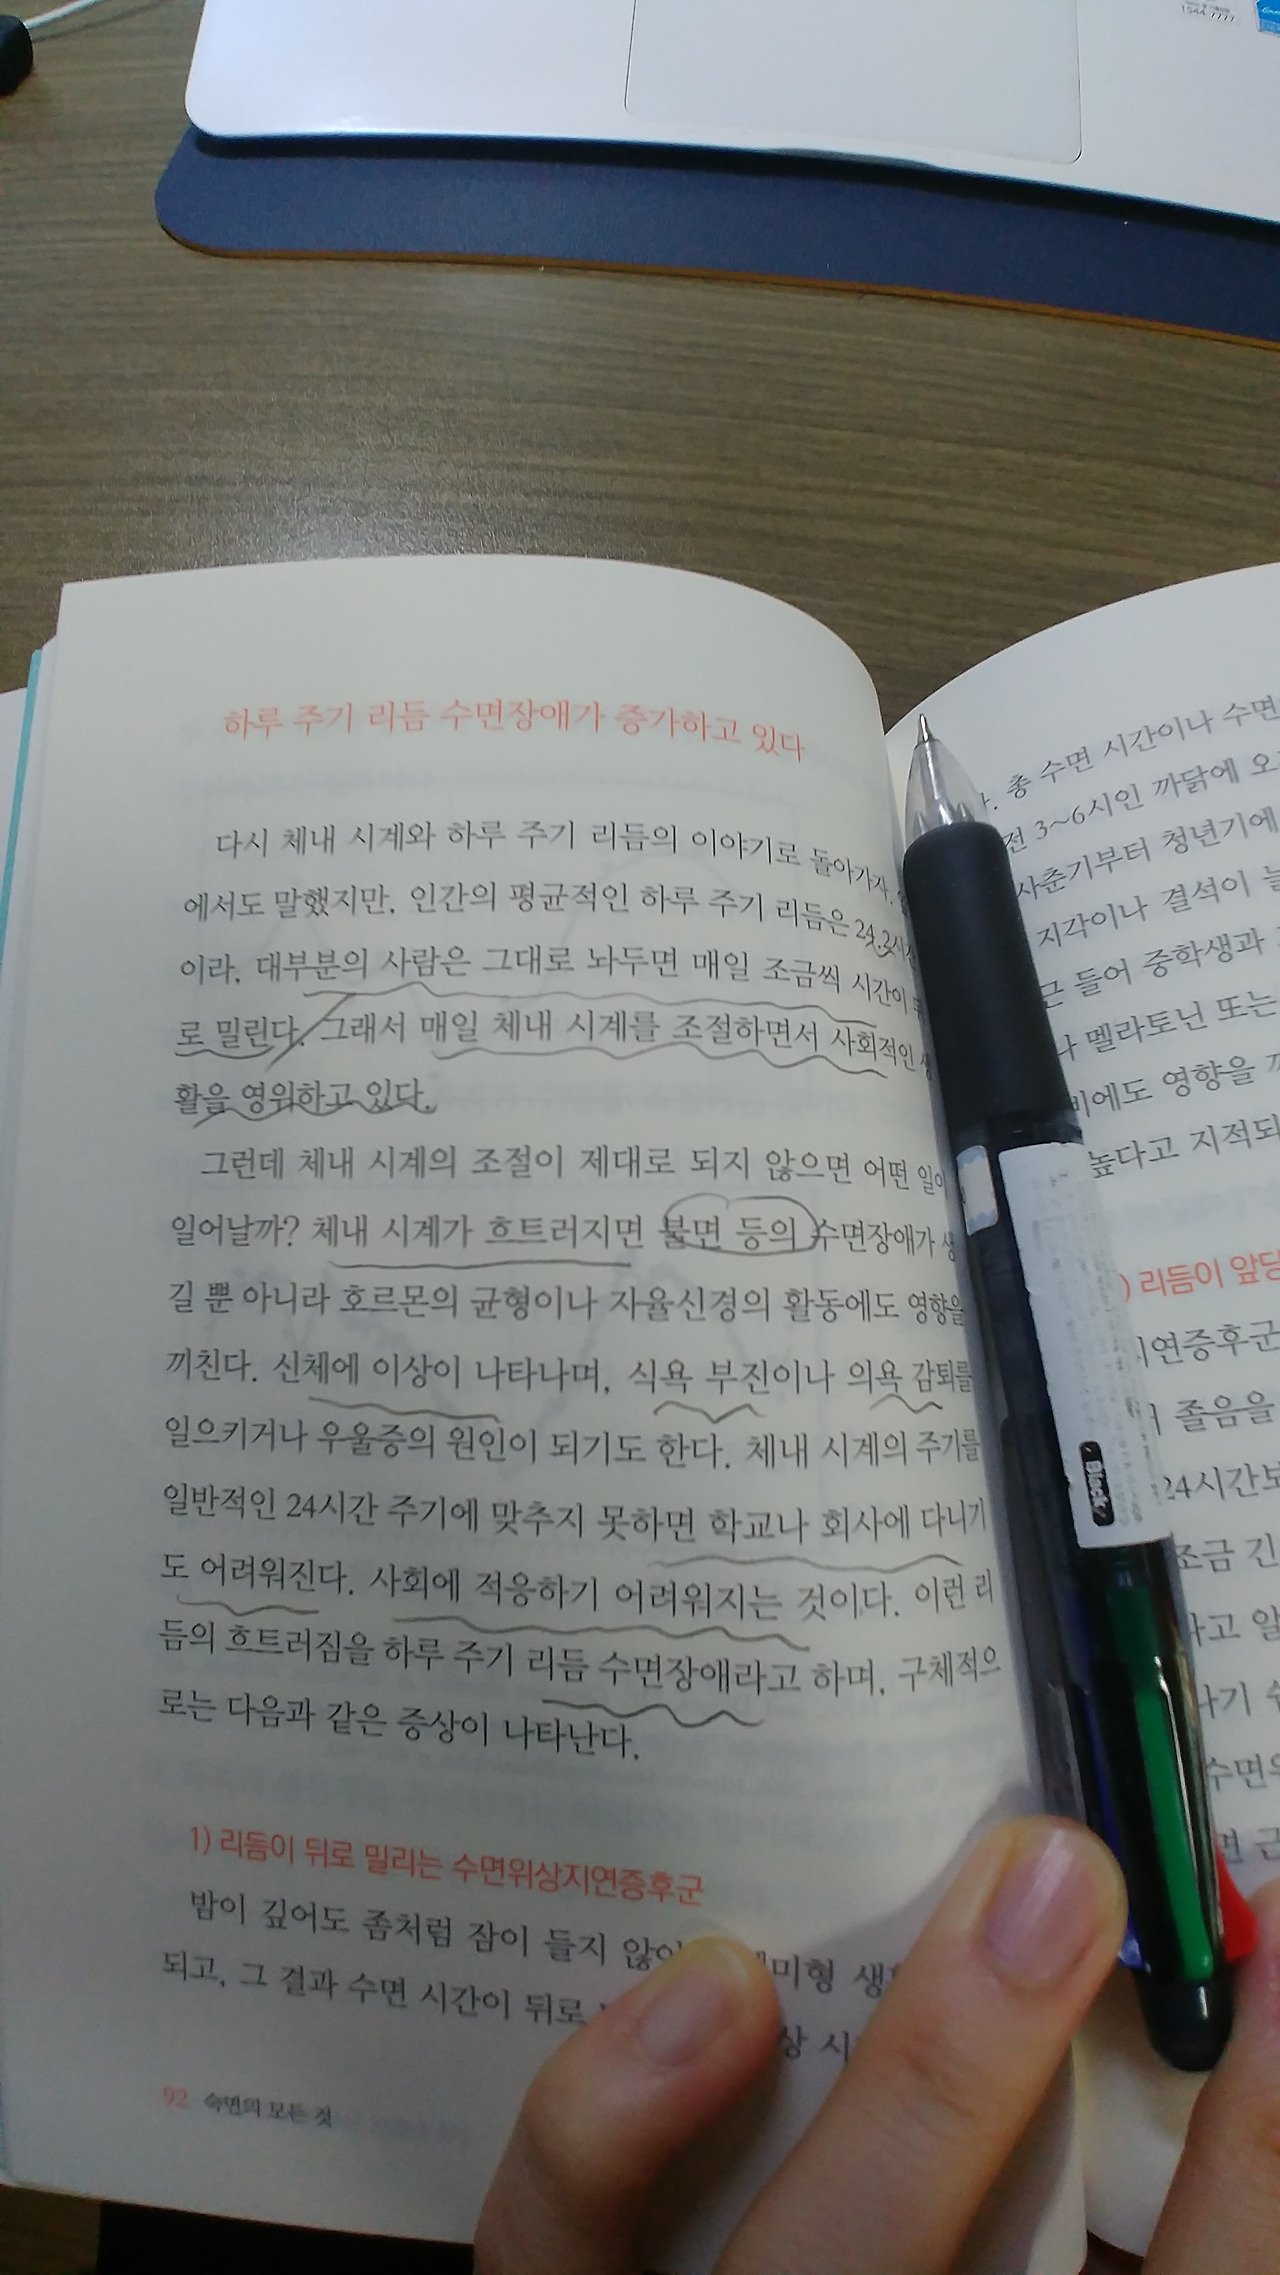 1544-7777
하루 주기 리듬 수면장애가 증가하고 있다
다시 체내 시계와 하루 주기 리듬의 이야기로 돌아가자.
에서도 말했지만, 인간의 평균적인 하루 주기 리듬은 24.2시간
이라, 대부분의 사람은 그대로 놔두면 매일 조금씩 시간이 뒤
로 밀린다. 그래서 매일 체내 시계를 조절하면서 사회적인 생
활을 영위하고 있다.
그런데 체내 시계의 조절이 제대로 되지 않으면 어떤 일이
일어날까? 체내 시계가 흐트러지면 불면 등의 수면장애가 생
길 뿐 아니라 호르몬의 균형이나 자율신경의 활동에도 영향을
끼친다. 신체에 이상이 나타나며, 식욕 부진이나 의욕 감퇴를
일으키거나 우울증의 원인이 되기도 한다. 체내 시계의 주기를
일반적인 24시간 주기에 맞추지 못하면 학교나 회사에 다니기
도 어려워진다. 사회에 적응하기 어려워지는 것이다. 이런 리
듬의 흐트러짐을 하루 주기 리듬 수면장애라고 하며, 구체적으
로는 다음과 같은 증상이 나타난다.
1) 리듬이 뒤로 밀리는 수면위상지연증후군
밤이 깊어도 좀처럼 잠이 들지 않아
되고, 그 결과 수면 시간이 뒤로
92 숙면의 모든 것
총 수면 시간이나 수면
전 3~6시인 까닭에 오
사춘기부터 청년기에
지각이나 결석이 늘
들어 중학생과
멜라토닌 또는
비에도 영향을 끼
높다고 지적되
) 리듬이 앞당
지연증후군
졸음을
24시간보
조금 긴
라고 알
수면위
Black